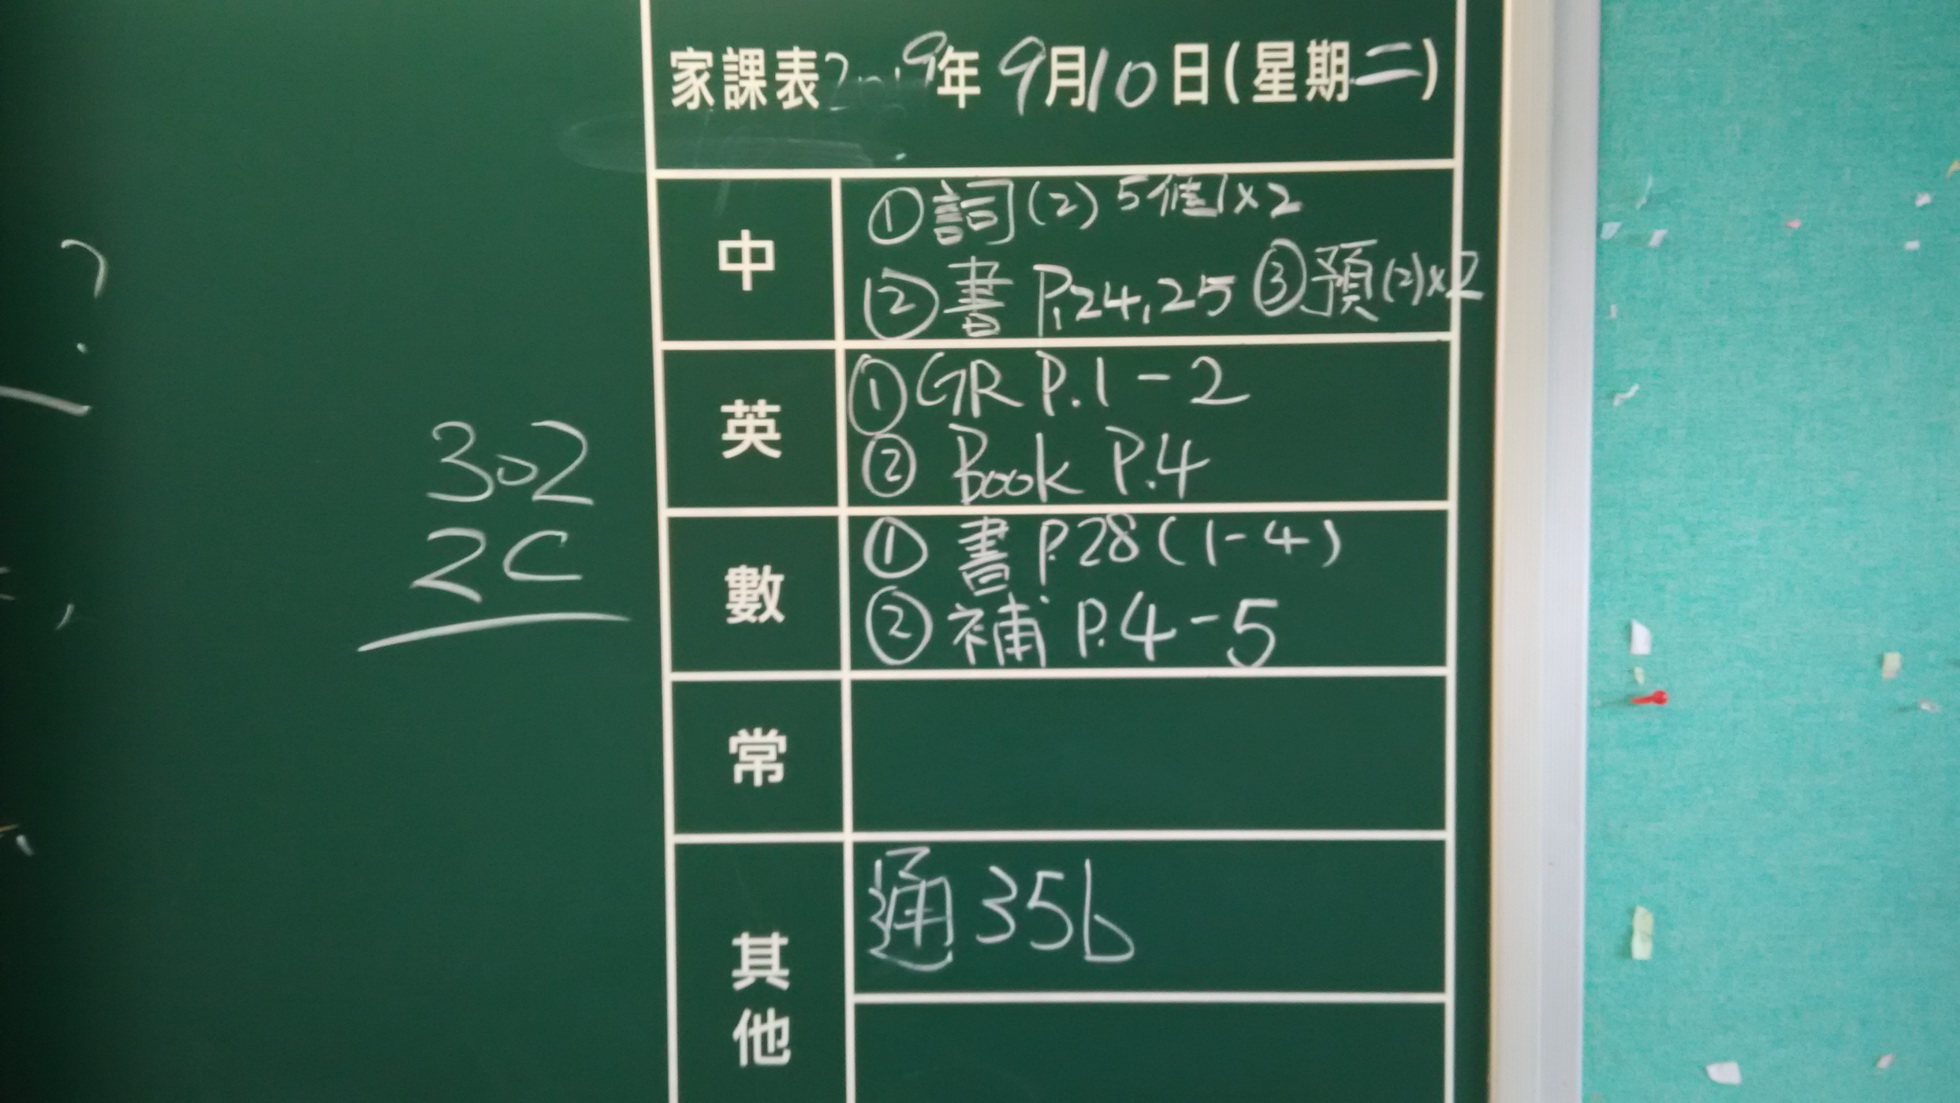 家課表2019年9月10日(星期二)
中
①詞(2) 5個1×2
②書 P.24,25 ③預(2)×2
英
①GR P.1-2
② Book P.4
數
① 書 P.28(1-4)
② 補 P.4-5
常
其他
通 35b
302
2C
?